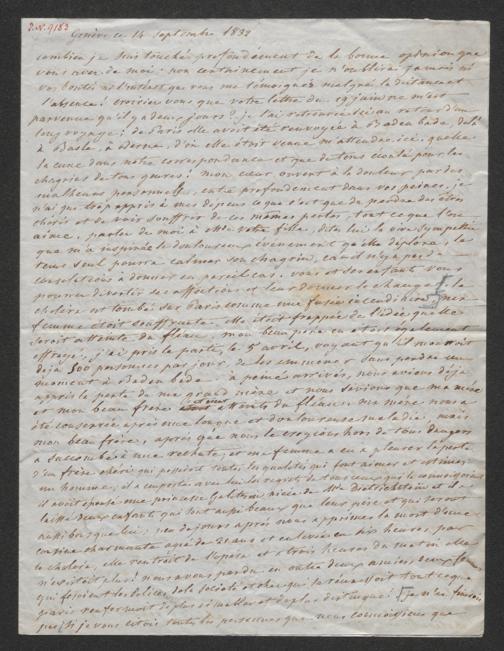 D.N. 9183
Genève ce 14 Septembre 1832
combien je suis touché profondément de la bonne opinion que
vous avez de moi. non certainement je n'oublierai jamais ni
vos bontés ni l'intérêt que vous me témoignez malgré la distance et
l'absence! croiriez vous que votre lettre du 19 juin ne m'est
parvenue qu'il y a deux jours? je l'ai retrouvée ici au retour d'un
long voyage; de Paris elle avoit été renvoyée à Baden Bade, de là
à Basle, à Berne, d'où elle étoit venue m'attendre ici. quelle
lacune dans notre correspondance et que de tems écoulé pour les
chagrins de tous genres! mon cœur ouvert à la douleur par des
malheurs personnels, entre profondément dans vos peines. je
n'ai que trop appris à mes dépens ce que c'est que de perdre des êtres
chéris et de voir souffrir de ces mêmes pertes, tout ce que l'on
aime. parlez de moi à votre fille, dites lui la vive sympathie
que m'a inspirée le douloureux évènement qu'elle déplore, le
tems seul pourra calmer son chagrin, car il n'y a pas de
consolations à donner en pareil cas. vous et son enfant vous
pourrez divertir ses afflictions et leur donner le change. le
choléra est tombé sur Paris comme une fusée incendiaire, ma
femme étoit souffrante. elle étoit frappée de l'idée qu'elle
seroit atteinte du fléau, mon beau père en étoit également
effrayé. j'ai pris le parti, le 5 avril, voyant qu'il mouroit
déjà 500 personnes par jour, de les emmener sans perdre un
moment à Baden bade. à peine arrivés, nous avions déjà
appris la perte de ma grand mère et nous savions que ma mère
et mon beau frère étoient atteints du fléau. ma mère nous a
été conservée après une longue et douloureuse maladie, mais
mon beau frère, après que nous le croyions hors de tous dangers
a succombé à une rechute, et ma femme a eu à pleurer la perte
d'un frère chéri qui possédoit toutes les qualités qui font aimer et estimer
un homme, il a emporté avec lui les regrets de tous ceux qui le connoissoient
il avoit épousé une princesse Galitzin nièce de Mde Dietrichstein et il
laisse deux enfants qui sont aussi beaux que leur père et qui seront
aussi bons que lui. peu de jours après nous apprîmes la mort d'une
cousine charmante agée de 21 ans et enlevée en six heures, par
le choléra, elle rentroit de l'opéra et à trois heures du matin elle
n'existoit plus! nous avons perdu en outre deux amies, deux femmes
qui faisoient les délices de la société et chez qui se réunissoit tout ce que
Paris renfermoit de plus aimable et de plus distingué. je n'en finirois
pas si je vous citois toutes les personnes que nous connoissions que